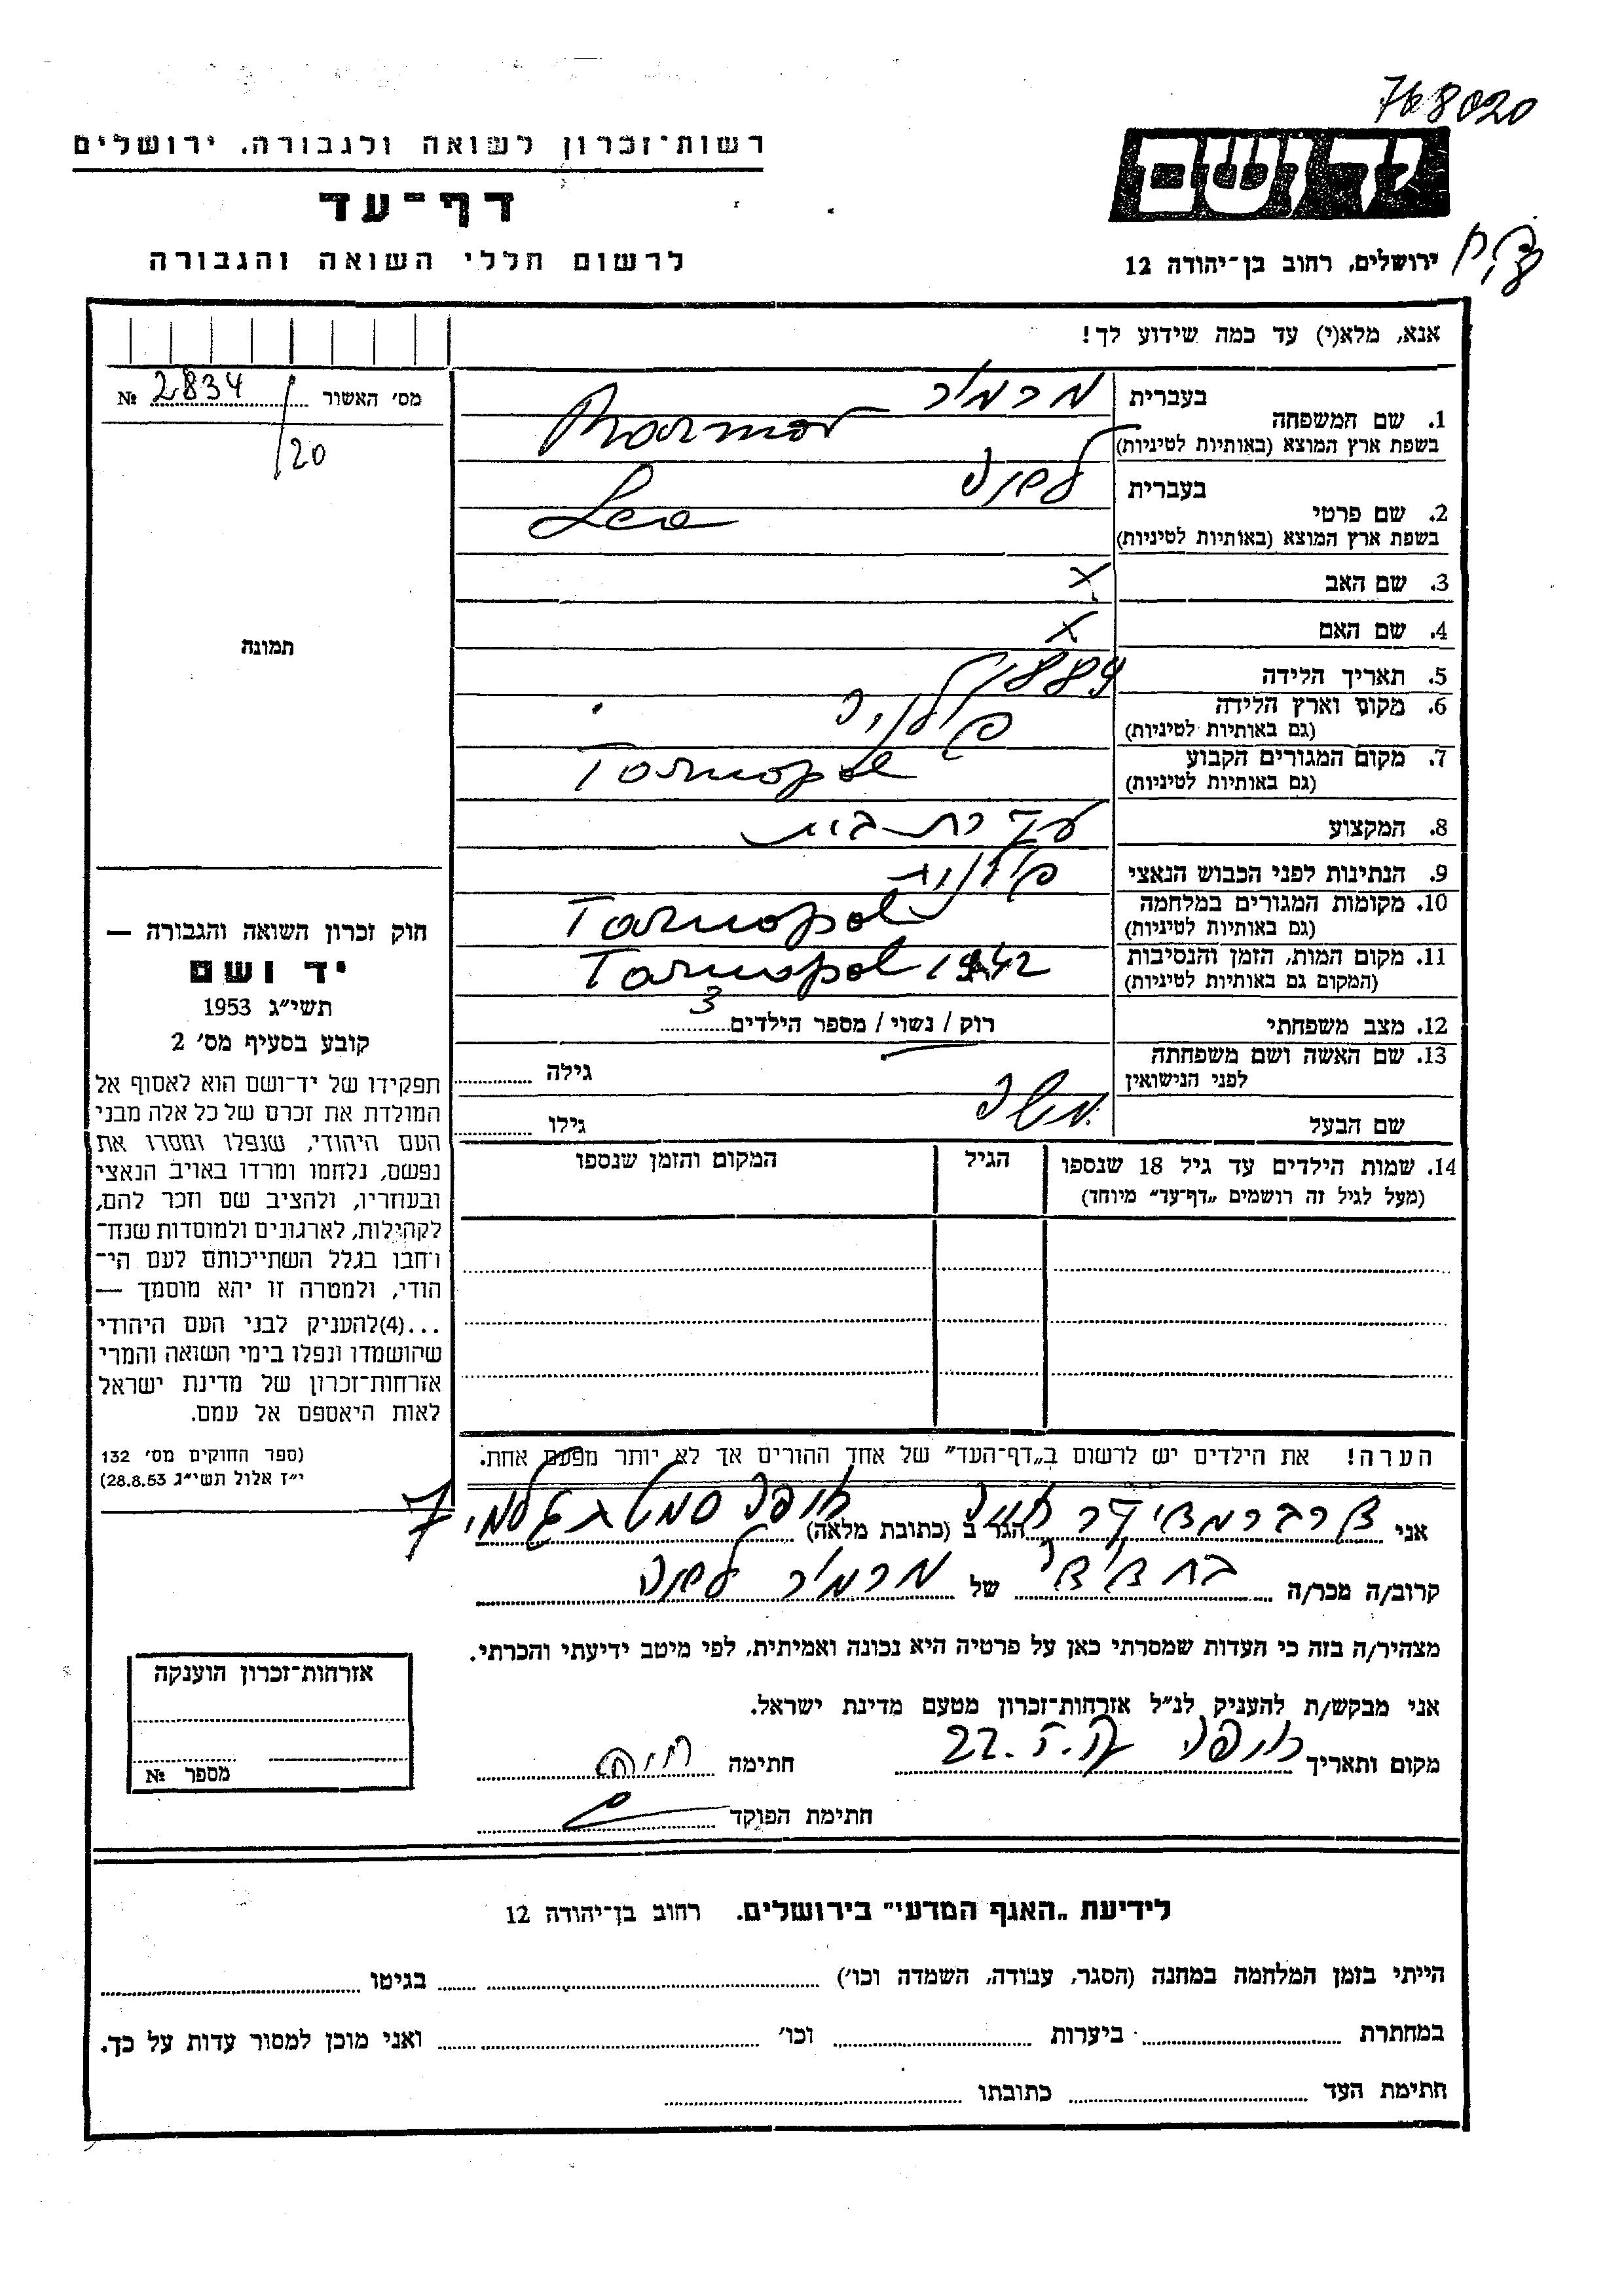 768020
רשות־זכרון לשואה ולגבורה, ירושלים
יד ושם
דף־עד
ירושלים, רחוב בן־יהודה 12
לרשום חללי השואה והגבורה
אנא, מלא(י) עד כמה שידוע לך!
מס׳ האשור 2834 №
/20
תמונה
1. שם המשפחה
בעברית
בשפת ארץ המוצא (באותיות לטיניות)
2. שם פרטי
בעברית
בשפת ארץ המוצא (באותיות לטיניות) Lea
3. שם האב x
4. שם האם x
5. תאריך הלידה 1884
6. מקום וארץ הלידה פולניה
(גם באותיות לטיניות)
7. מקום המגורים הקבוע Tarnopol
(גם באותיות לטיניות)
8. המקצוע עקרת בית
9. הנתינות לפני הכבוש הנאצי פולנית
10. מקומות המגורים במלחמה Tarnopol
(גם באותיות לטיניות)
11. מקום המות, הזמן והנסיבות Tarnopol 1942
(המקום גם באותיות לטיניות)
12. מצב משפחתי רוק / נשוי / מספר הילדים 3
13. שם האשה ושם משפחתה
לפני הנישואין גילה
שם הבעל משה גילו
14. שמות הילדים עד גיל 18 שנספו
(מעל לגיל זה רושמים „דף־עד" מיוחד)
הגיל
המקום והזמן שנספו
הערה! את הילדים יש לרשום ב„דף־העד" של אחד ההורים אך לא יותר מפעם אחת.
חוק זכרון השואה והגבורה —
יד ושם
תשי״ג 1953
קובע בסעיף מס׳ 2
תפקידו של יד־ושם הוא לאסוף אל
המולדת את זכרם של כל אלה מבני
העם היהודי, שנפלו ומסרו את
נפשם, נלחמו ומרדו באויב הנאצי
ובעוזריו, ולהציב שם וזכר להם,
לקהילות, לארגונים ולמוסדות שנח־
רחבו בגלל השתייכותם לעם הי־
הודי, ולמטרה זו יהא מוסמך —
...(4)להעניק לבני העם היהודי
שהושמדו ונפלו בימי השואה והמרי
אזרחות־זכרון של מדינת ישראל
לאות היאספם אל עמם.
(ספר החוקים מס׳ 132
י״ז אלול תשי״ג 28.8.53)
אני הגר ב (כתובת מלאה) 7
קרוב/ה מכר/ה של
מצהיר/ה בזה כי העדות שמסרתי כאן על פרטיה היא נכונה ואמיתית, לפי מיטב ידיעתי והכרתי.
אני מבקש/ת להעניק לנ״ל אזרחות־זכרון מטעם מדינת ישראל.
מקום ותאריך חיפה 22. חתימה
חתימת הפוקד
אזרחות־זכרון הוענקה
מספר №
לידיעת „האגף המדעי" בירושלים, רחוב בן־יהודה 12
הייתי בזמן המלחמה במחנה (הסגר, עבודה, השמדה וכו׳) בגיטו
במחתרת ביערות וכו׳ ואני מוכן למסור עדות על כך.
חתימת העד כתובתו